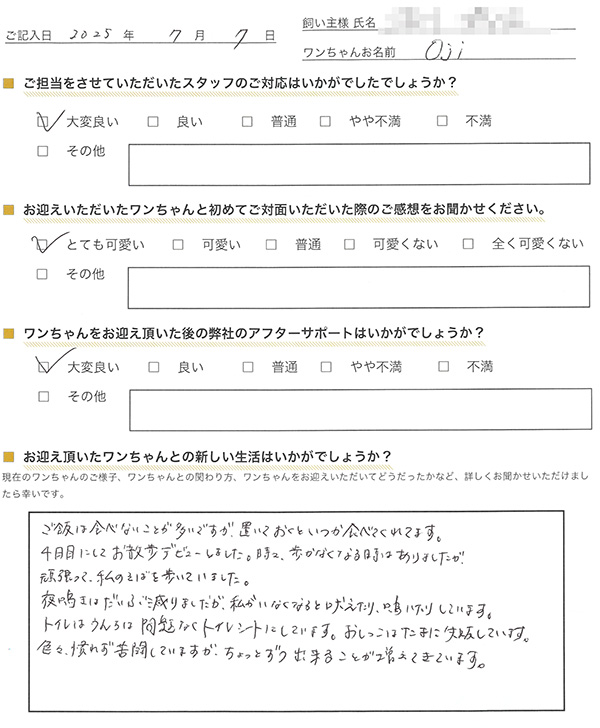 ご記入日 2025 年 7 月 7 日
飼い主様 氏名
ワンちゃんお名前 Oji
ご担当をさせていただいたスタッフのご対応はいかがでしたでしょうか？
大変良い 良い 普通 やや不満 不満
その他
お迎えいただいたワンちゃんと初めてご対面いただいた際のご感想をお聞かせください。
とても可愛い 可愛い 普通 可愛くない 全く可愛くない
その他
ワンちゃんをお迎え頂いた後の弊社のアフターサポートはいかがでしょうか？
大変良い 良い 普通 やや不満 不満
その他
お迎え頂いたワンちゃんとの新しい生活はいかがでしょうか？
現在のワンちゃんのご様子、ワンちゃんとの関わり方、ワンちゃんをお迎えいただいてどうだったかなど、詳しくお聞かせいただけまし
たら幸いです。
ご飯は食べないことが多いですが、置いておくといつか食べてくれてます。
4日目にしてお散歩デビューしました。時々、歩かなくなる時はありましたが
頑張って、私のそばを歩いていました。
夜鳴きはだいぶ減りましたが、私がいなくなると吠えたり、鳴いたりしています。
トイレはうんちは問題なくトイレシートにしています。おしっこはたまに失敗しています。
色々、慣れず苦闘していますが、ちょっとずつ出来ることが増えてきています。